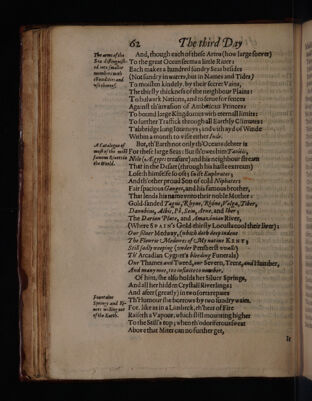 62 The third Day
The armes of the
Sea distinguish-
ed into smaller
members with
And, though each of these Arms (how large soever)
To the great Ocean seem a little River:
Each makes a hundred sundry Seas besides
(Not sundry in waters, but in Names and Tides)
To moisten kindely, by their secret Vains,
The thirsty thickness of the neighbour Plains:
To bulwark Nations, and to serve for fences
Against th'invasion of Ambitious Princes:
To bound large Kingdomes with eternall limits:
To further Traffick through all Earthly Climats:
T'abbridge long Journeys; and with ayd of Winde
Within a month to visit either Inde.
A Catalogue of
most of the most
famous Rivers in
the World.
But, th'Earth not only th'Oceans debter is
For these large Seas: But sh'owes him Tanais,
Nile (Ægypts treasure) and his neighbour stream
That in the Desart (through his haste extream)
Loseth himself so oft; swift Euphrates;
And th'other proud Son of cold Niphates:
Fair spacious Ganges, and his famous brother,
That lends his name unto their noble Mother:
Gold-sanded Tagus, Rhyne, Rhône, Volga, Tiber,
Danubius, Albis, Pô, Sein, Arne, and Iber;
The Darian Plate, and Amazonian River,
(Where SPAIN'S Gold-thirsty Locusts cool their liver):
Our silver Medway, (which doth deep indent
The Flowrie Medowes of My native KENT;
Still sadly weeping (under Penshurst walls)
Th' Arcadian Cygnet's bleeding Funerals)
Our Thames and Tweed, our Severn, Trent, and Humber,
And many moe, too infinite to number.
Fountains
Springs and Ri-
vers welling out
of the Earth.
Of him, she also holds her Silver Springs,
And all her hidden Crystall Riverlings:
And after (greatly) in two sorts repaies
Th'Humour she borrows by two sundry waies.
For, like as in a Limbeck, th'heat of Fire
Raiseth a Vapour, which still mounting higher
To the Still's top; when th'odoriferous sweat
Above that Miter can no further get,
It